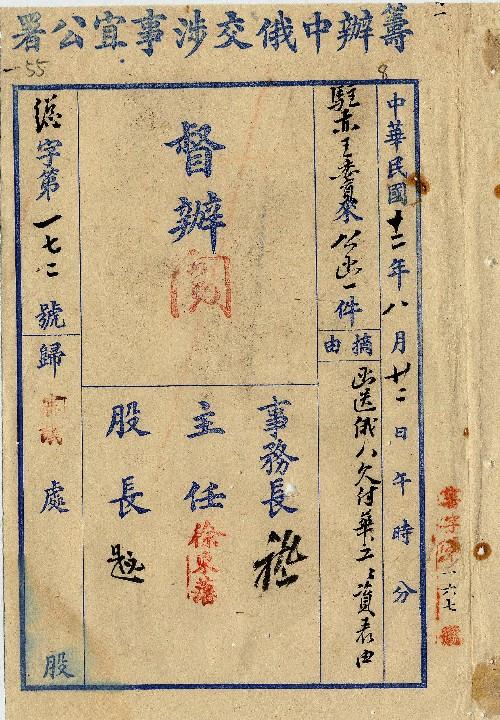 籌辦中俄交涉事宜公署
55
8
中華民國十二年八月廿二日午時分
駐赤王委員來公函一件
摘由
函送俄人欠付華工工資表由
督辦
閱
事務長
主任
徐東藩
股長
總字第一七八號歸處
股
一六七
號